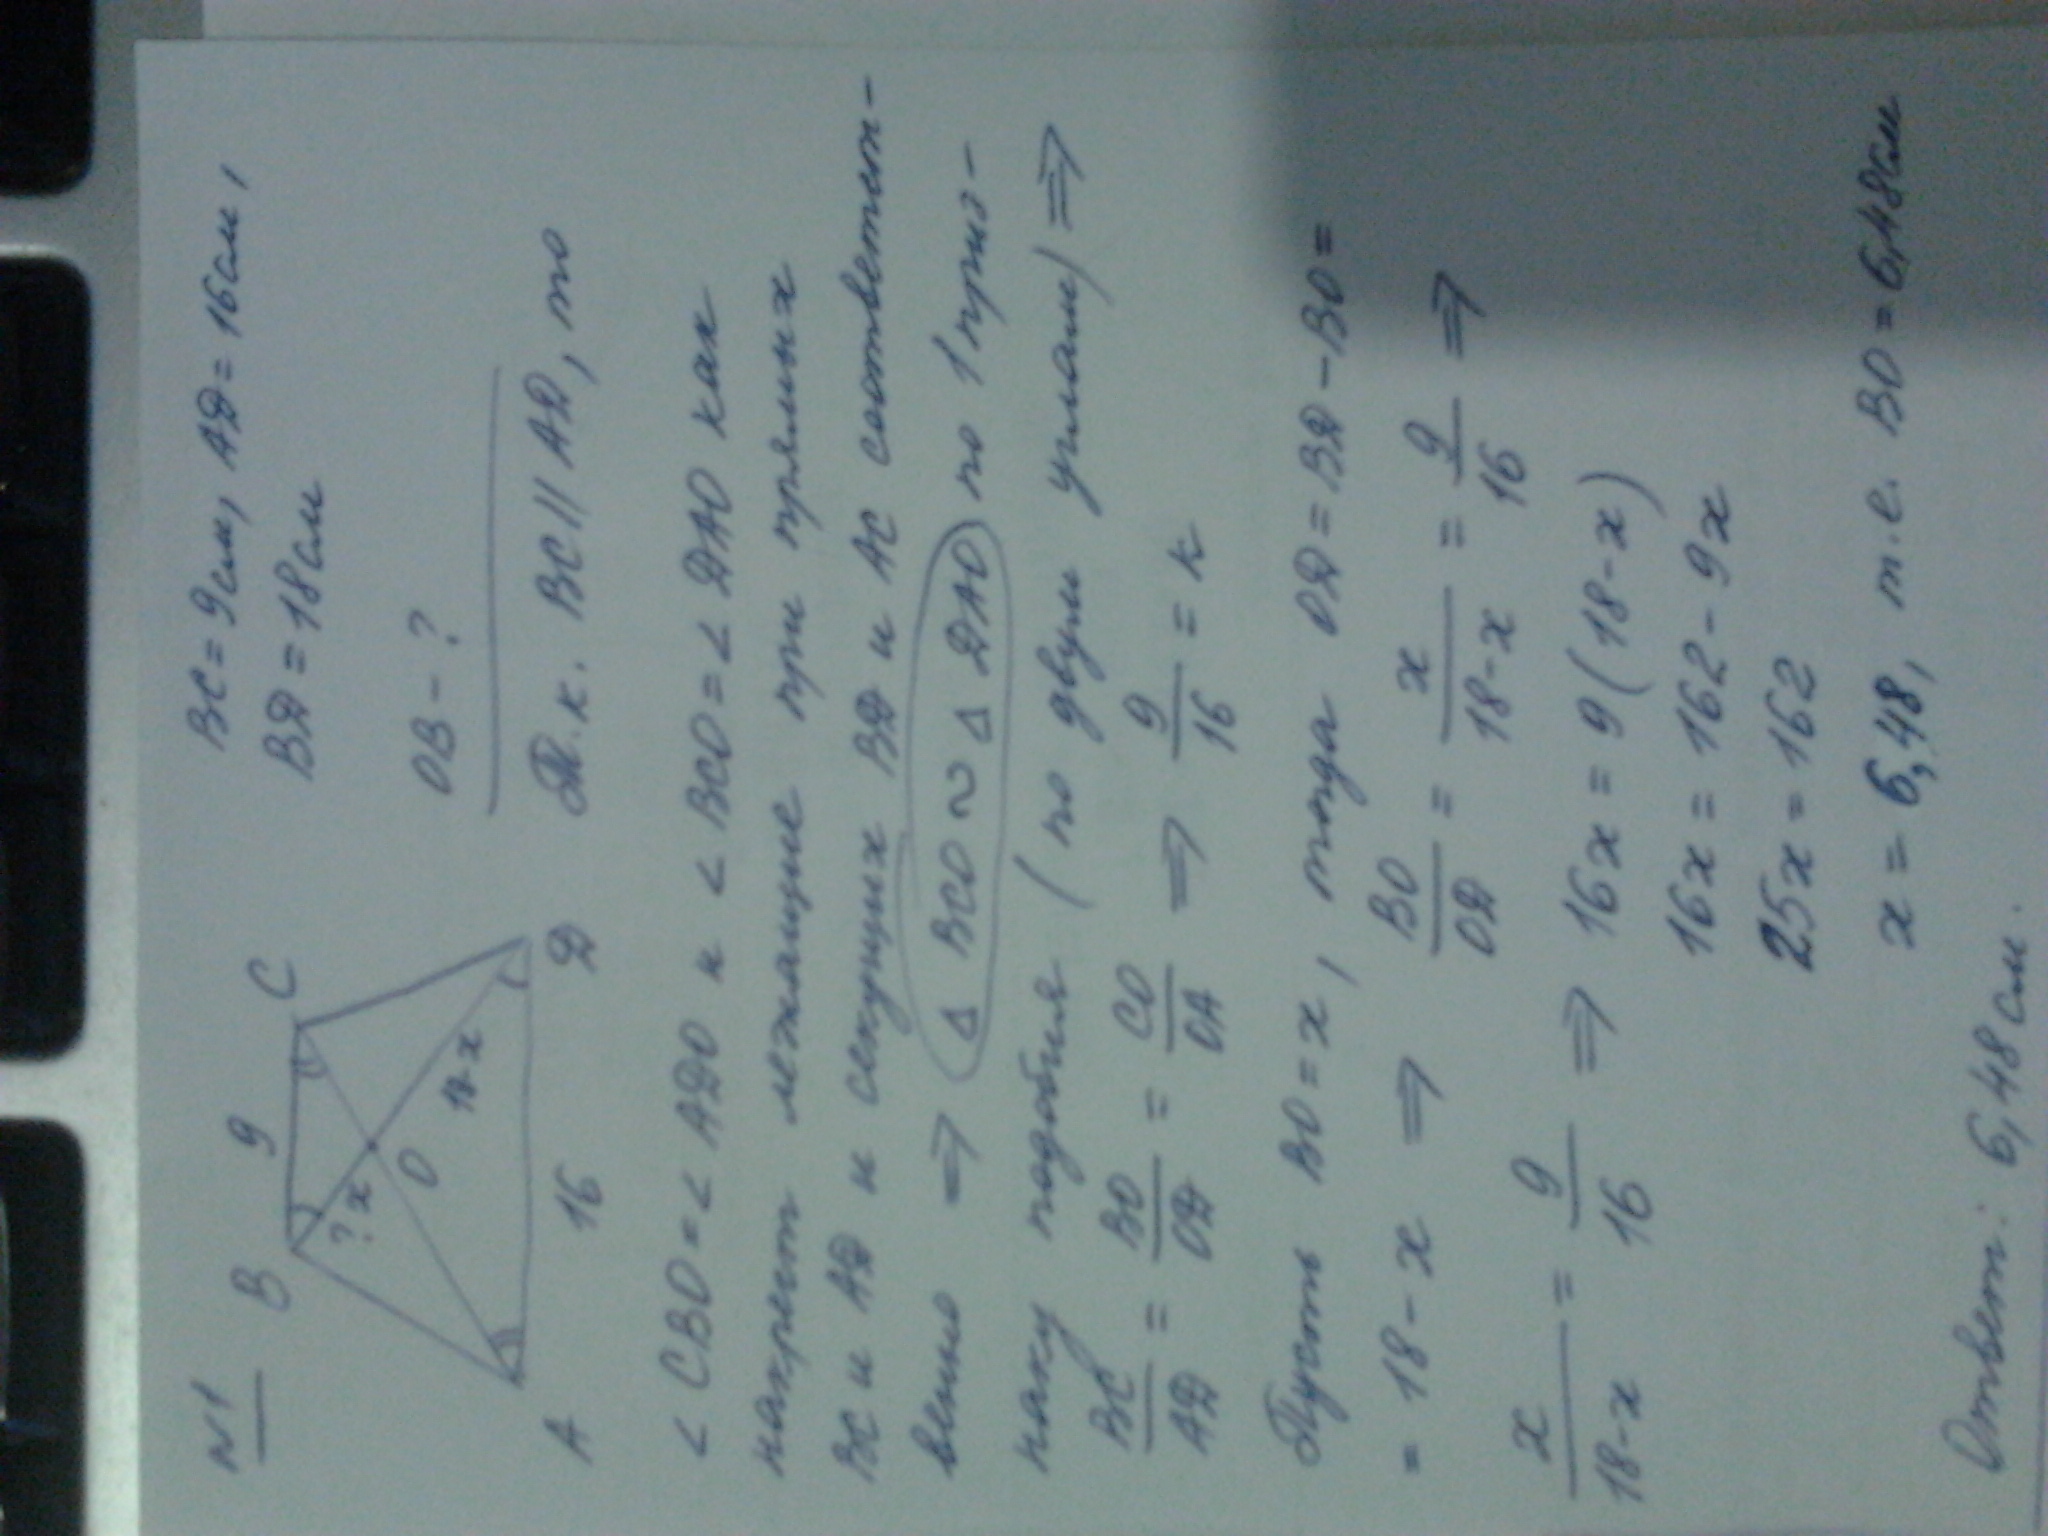 N1
BC = 9см, AD = 16см,
BD = 18см
OB - ?
B 9 C
? x
O
18-x
A 16 D
Т.к. BC || AD, то
∠ CBO = ∠ ADO и ∠ BCO = ∠ DAO как
накрест лежащие при прямых
BC и AD и секущих BD и AC соответст-
венно ⇒ Δ BCO ~ Δ DAO по 1 приз-
наку подобия (по двум углам) ⇒
BC/AD = BO/OD = CO/OA ⇒ 9/16 = k
Пусть BO = x, тогда OD = BD - BO =
= 18 - x ⇒ BO/OD = x/18-x = 9/16 ⇒
x/18-x = 9/16 ⇒ 16x = 9(18-x)
16x = 162 - 9x
25x = 162
x = 6,48, т.е. BO = 6,48см
Ответ: 6,48 см.